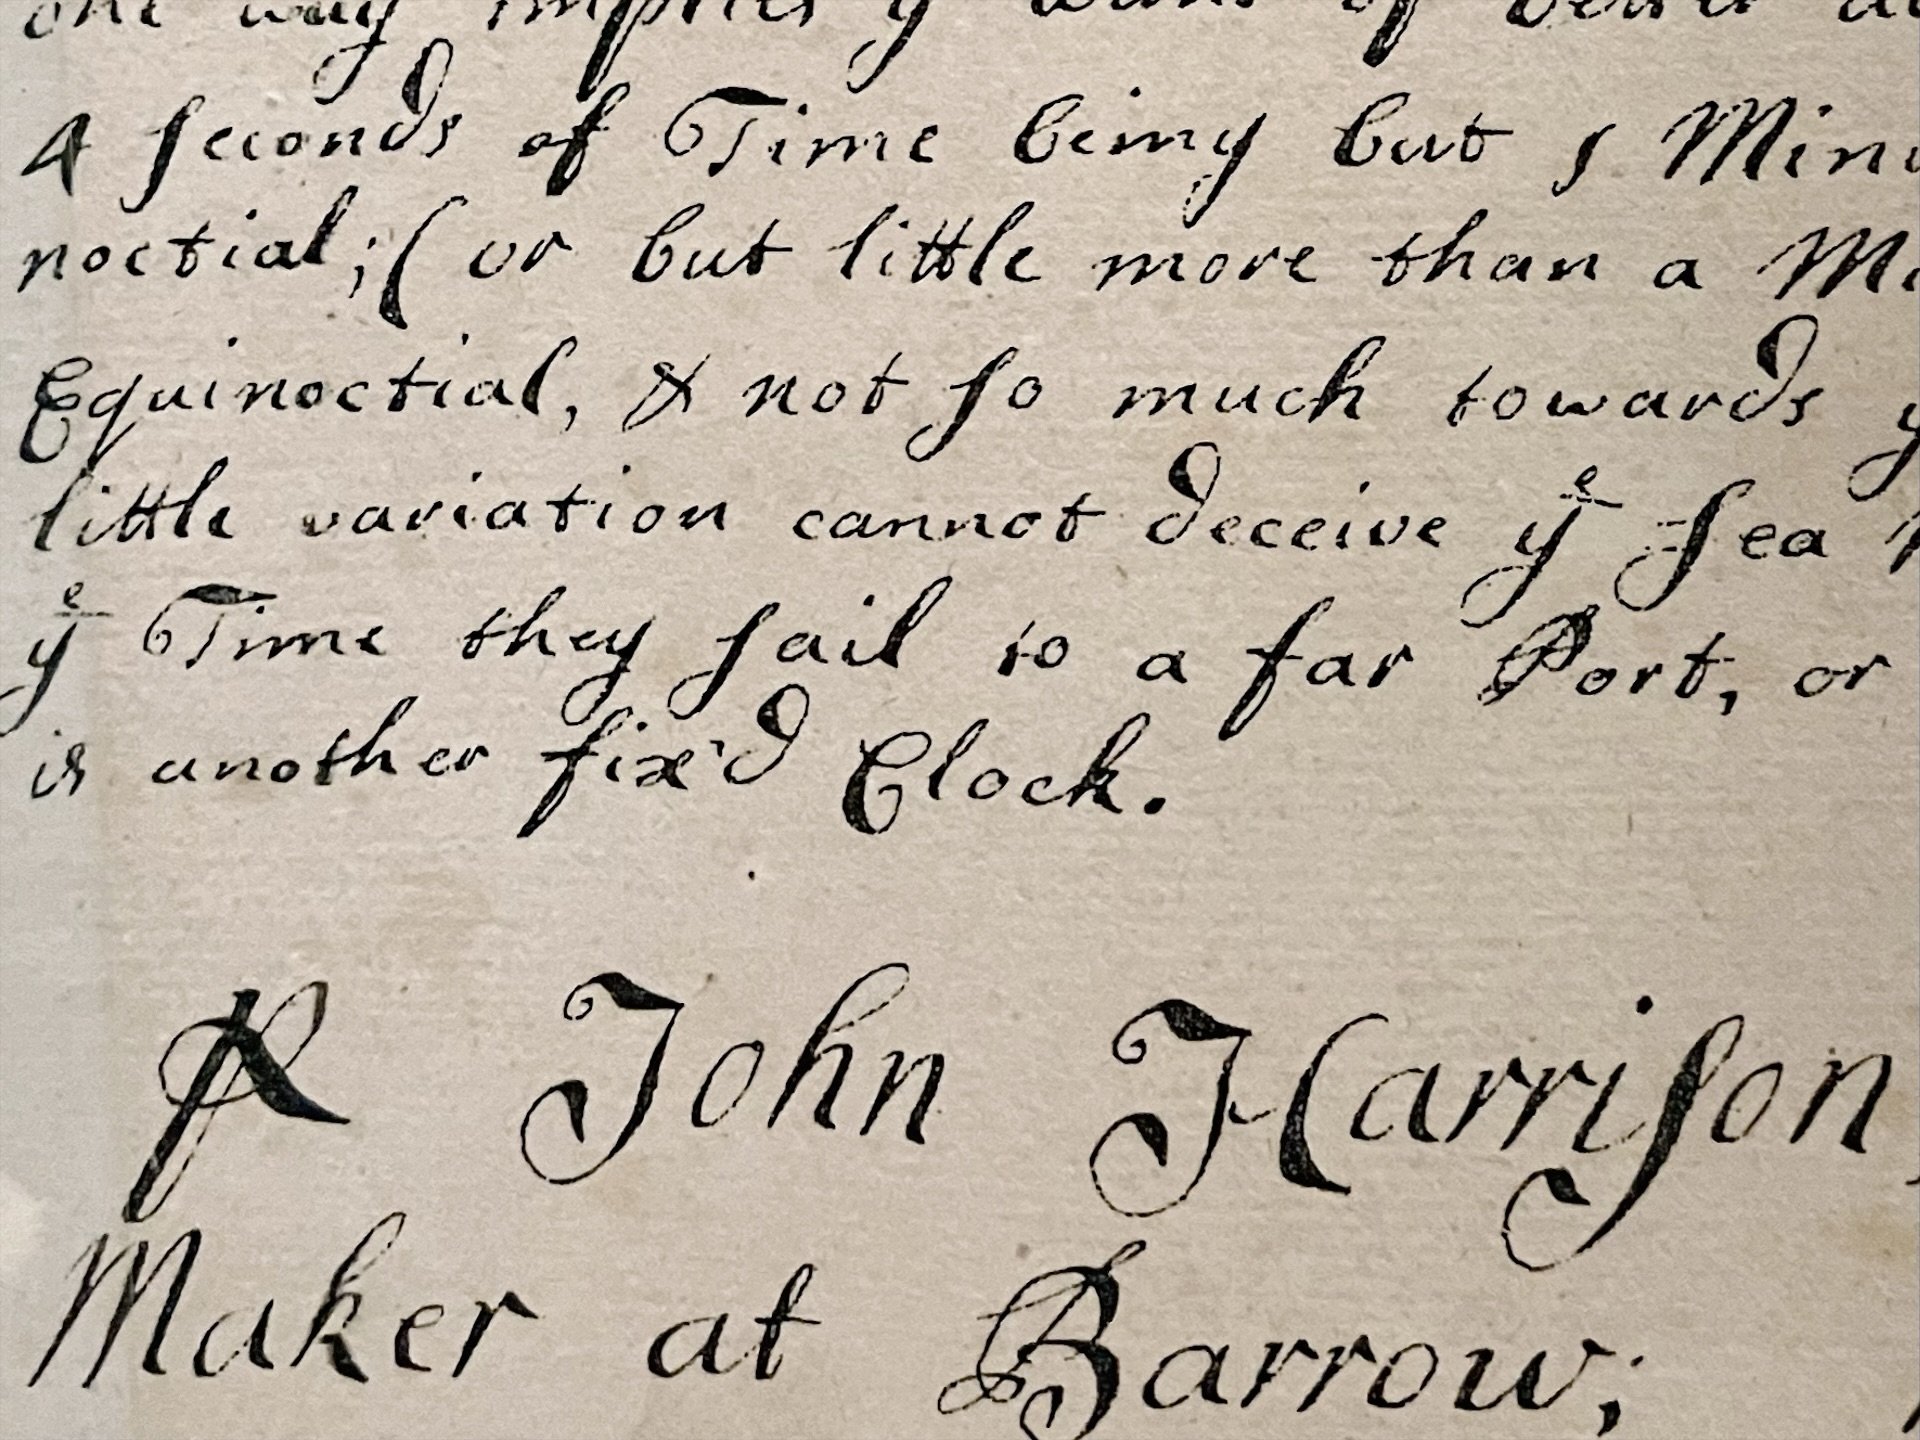 one way implies yͤ want of
4 ſeconds of Time being but 1 Minu
noctial; (or but little more than a Mi
Equinoctial, & not ſo much towards y
little variation cannot deceive yͤ Sea
yͤ Time they ſail to a far Port, or
is another fix'd Clock.
⅌ John Harriſon,
Maker at Barrow;